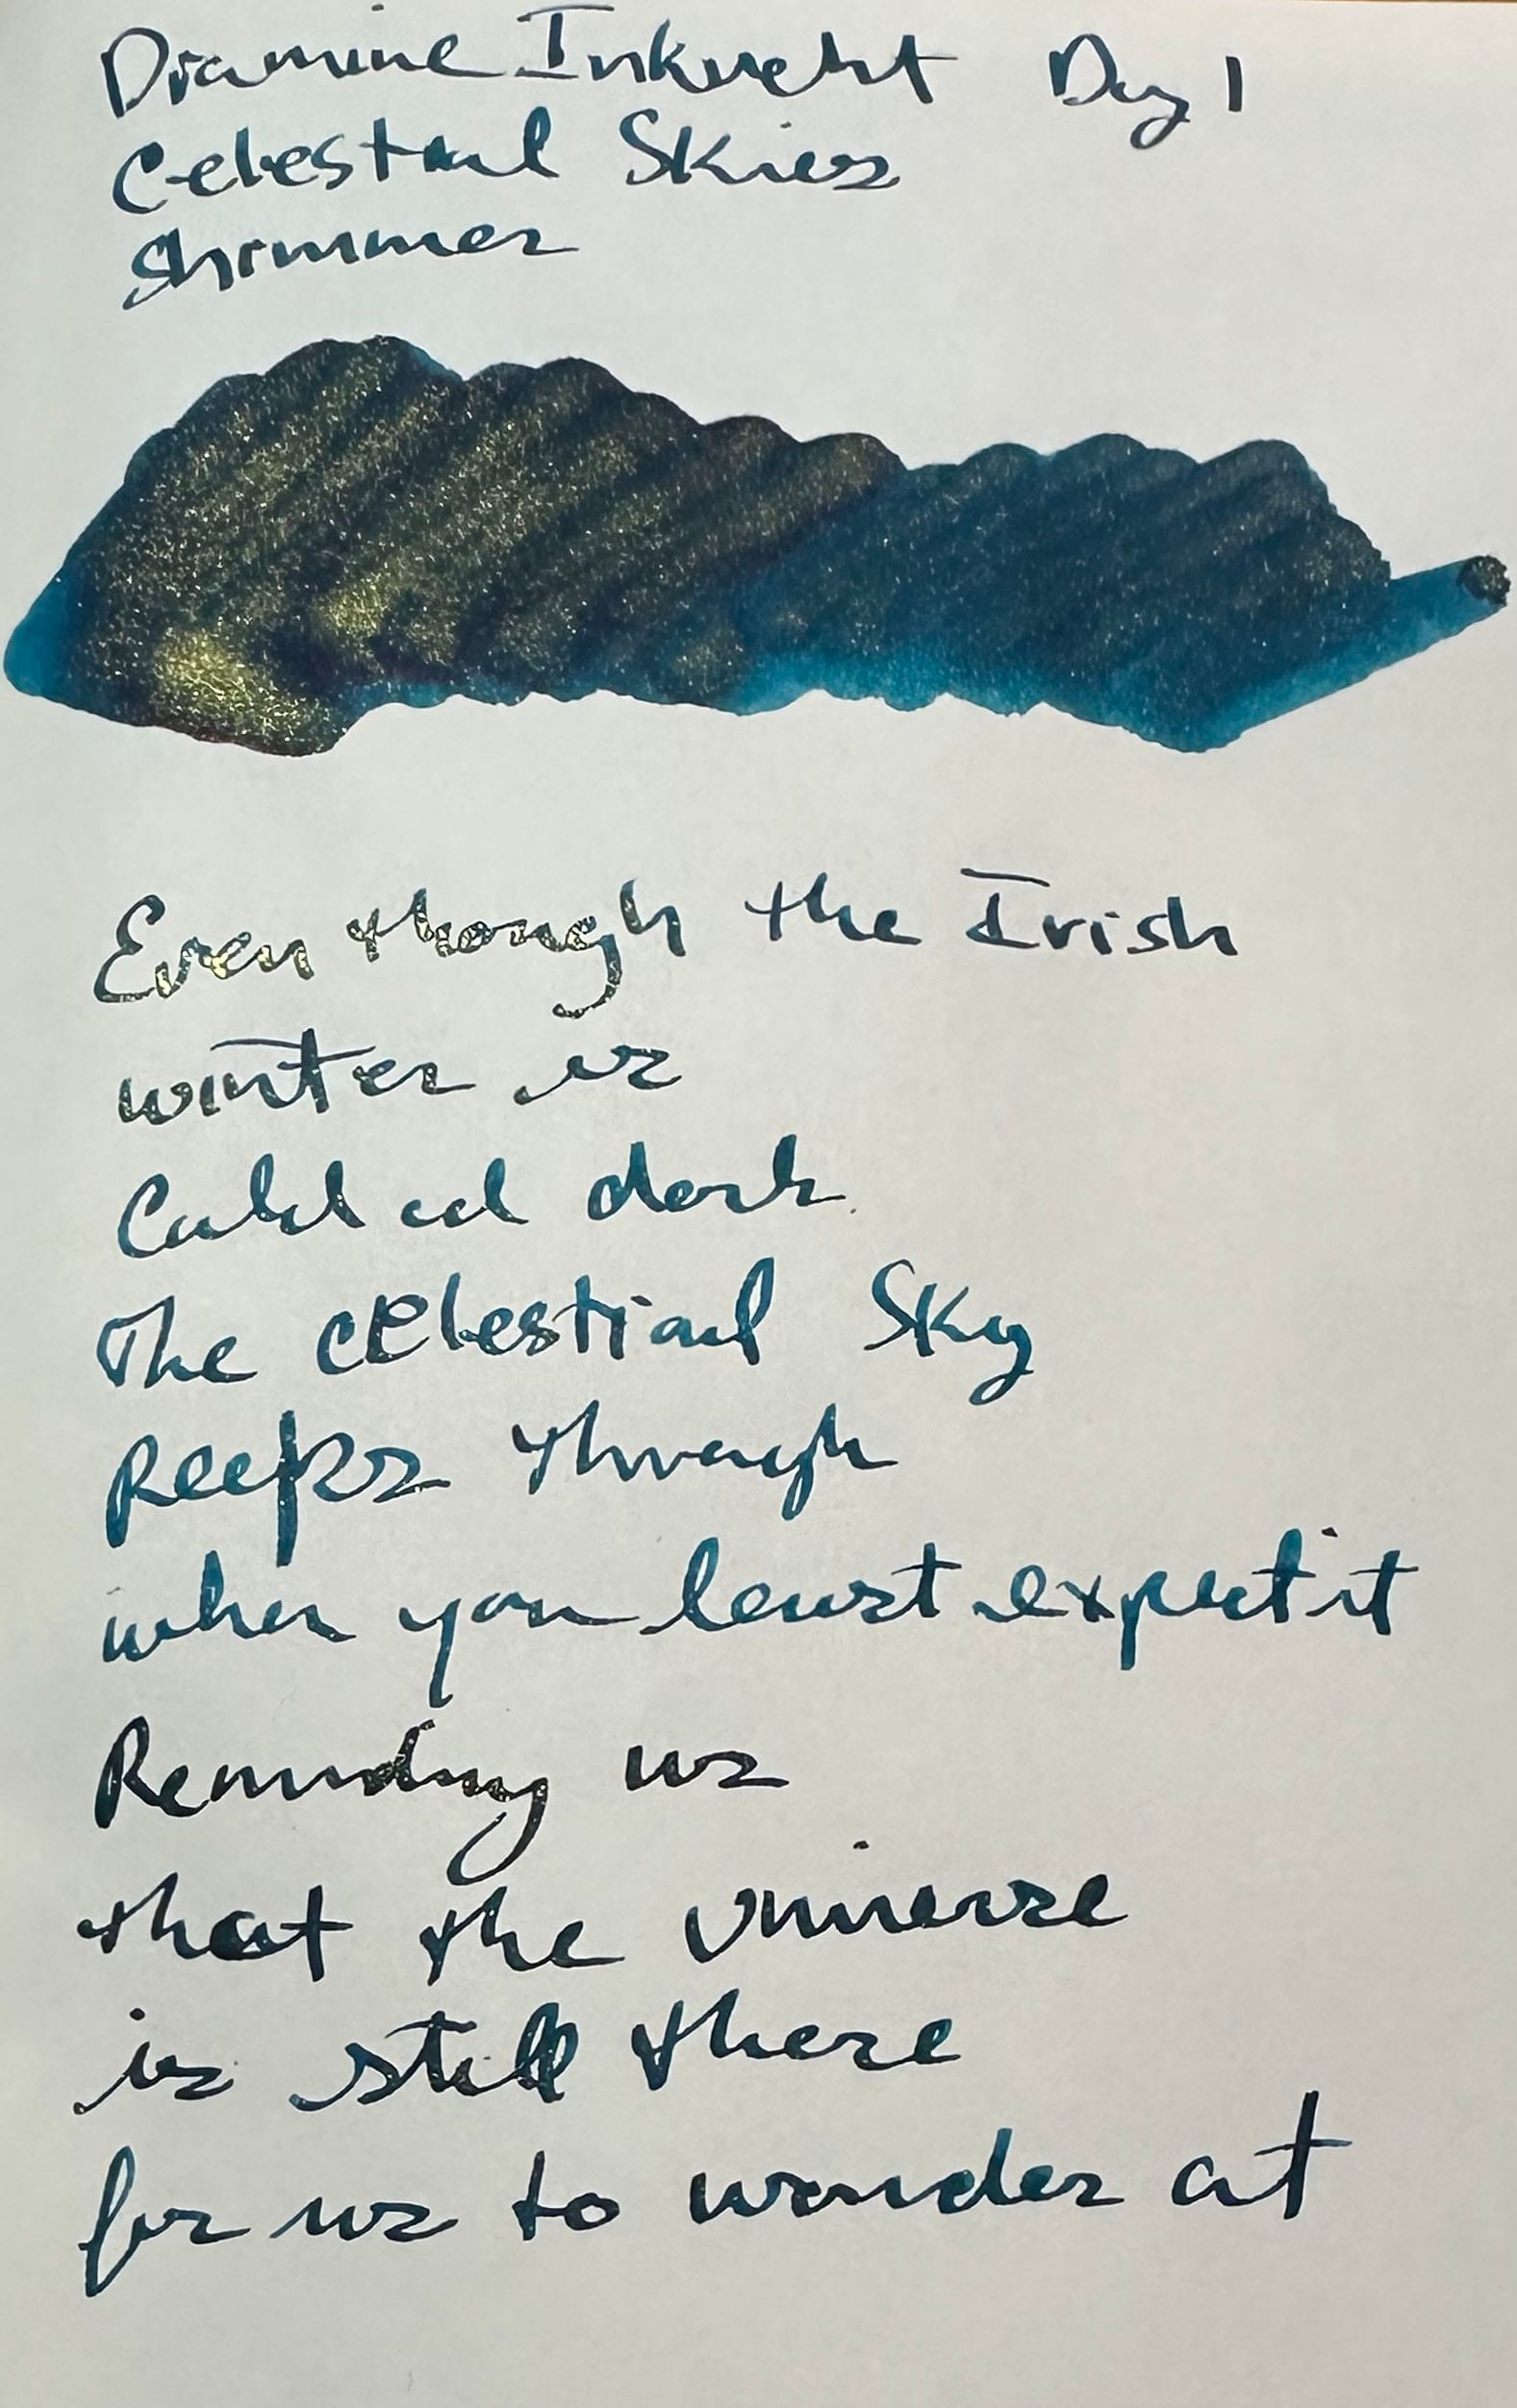 Diamine Inkvent Day 1
Celestial Skies
Shimmer
Even though the Irish
winter is
Cold and dark.
The celestial Sky
Peeps through
when you least expect it
Reminding us
that the universe
is still there
for us to wonder at